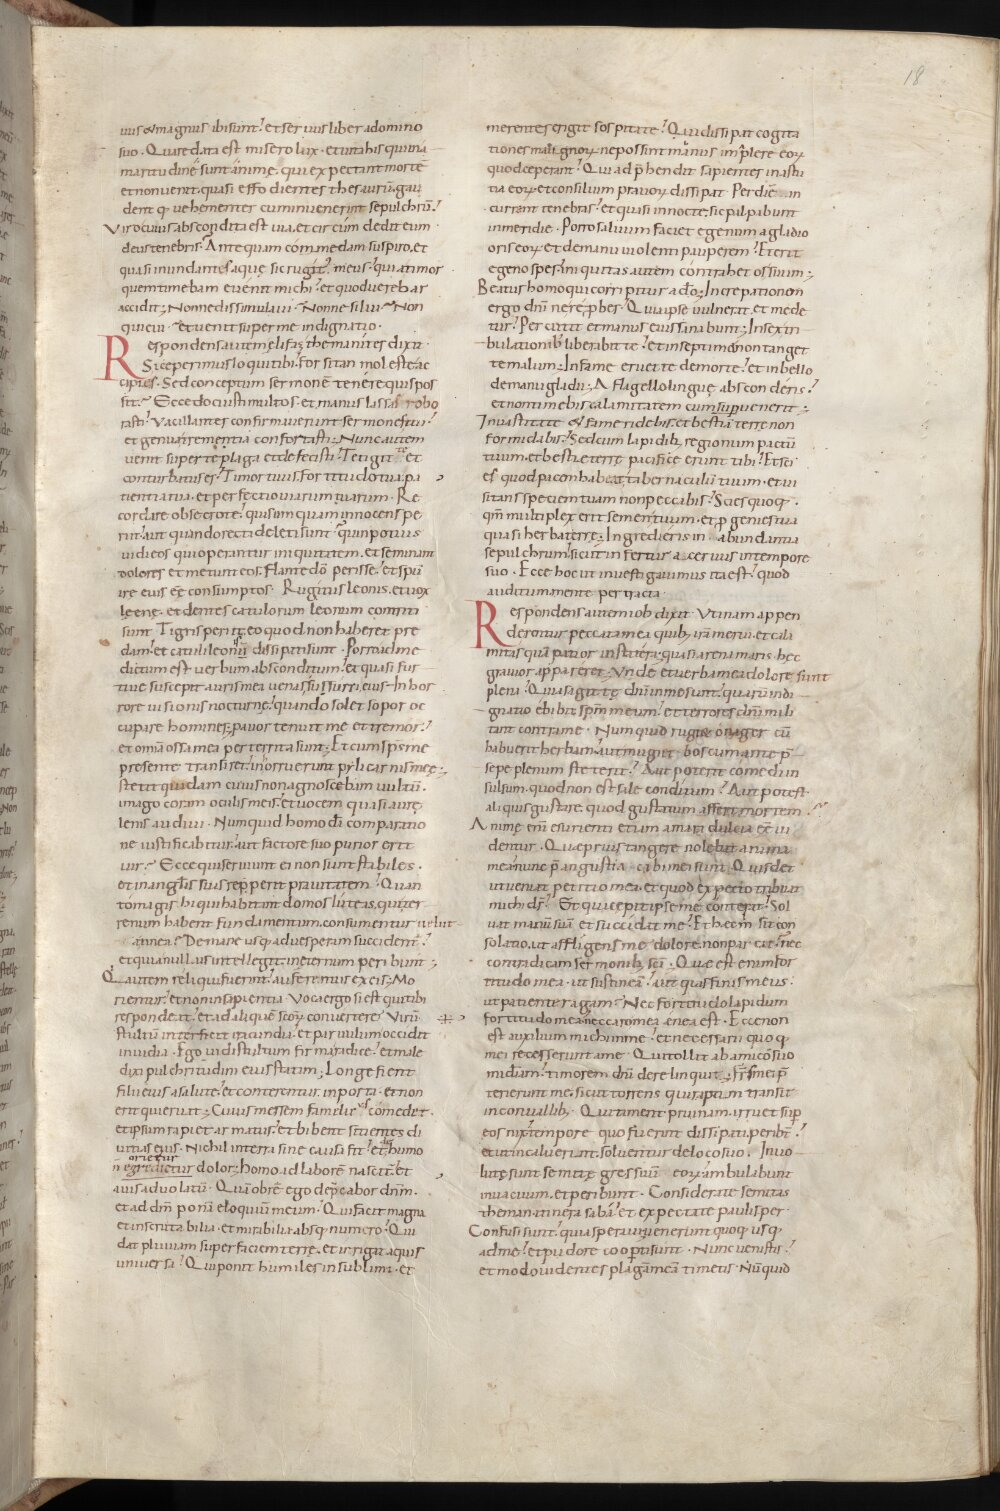 18
uus & magnus ibi sunt. et seruus liber a domino
suo. Quare data est misero lux. et uita his qui in a
maritudine sunt animę. qui expectant mortē
et non uenit. quasi effodientes thesaurū. gau
dent q; uehementer cum inuenerint sepulchrū.
Viro cuius abscondita est uia. et circumdedit eum
deus tenebris. Antequam commedam suspiro. et
quasi inundantes aquę sic rugit' meus. quia timor
quem timebam euenit michi. et quod uerebar
accidit; Nonne dissimulaui. Nonne silui. Non
quieui. et uenit super me indignatio.
Respondens autem elifaz themanites dixit.
Si ceperimus loqui tibi. forsitan moleste ac
cipies. Sed conceptum sermonē tenere quis pos
sit. Ecce docuisti multos. et manus lassas robo
rasti. Vacillantes confirmauerunt sermones tui.
et genua trementia confortasti. Nunc autem
uenit super te plaga et defecisti. Tetigit te et
conturbatus es. Timor tuus. fortitudo tua. pa
tientia tua. et perfectio uiarum tuarum. Re
cordare obsecro te. quis umquam innocens pe
riit. aut quando recti deleti sunt. Quin potius
uidi eos qui operantur iniquitatem. et seminant
dolores et metunt eos. flante dō perisse. et spū
ire eius eē consumptos. Rugitus leonis. et uox
leenę. et dentes catulorum leonum contriti
sunt. Tigris periit. eo quod non haberet prę
dam. et catuli leonū dissipati sunt. Porro ad me
dictum est uerbum absconditum. et quasi fur
tiue suscepit auris mea uenas susurri eius. In hor
rore uisionis nocturnę. quando solet sopor oc
cupare homines. pauor tenuit me et tremor.
et omīa ossa mea perterrita sunt; Et cum sp̄s me
presente transiret. inhorruerunt pyli carnis meę;
Stetit quidam cuius non agnoscebam uultū.
imago coram oculis meis. et uocem quasi aurę
lenis audiui. Numquid homo dī comparatio
ne iustificabitur. aut factore suo purior erit
uir. Ecce qui seruiunt ei non sunt stabiles.
et in anglīs suis repperit prauitatem. Quan
to magis hi qui habitant domos luteas. qui ter
renum habent fundamentum. consumentur uelut
a tinea. De mane usq; ad uesperum succidentur.
et quia nullus intellegit. in eternum peribunt;
Qui autem reliqui fuerint. auferentur ex eis. Mo
rientur. et non in sapientia. Voca ergo si est qui tibi
respondeat. et ad aliquē scōrum conuertere. Virū
stultū interficit iracundia. et paruulum occidit
inuidia. Ego uidi stultum firma radice. et male
dixi pulchritudini eius statim; Longe fient
filii eius a salute. et conterentur in porta. et non
erit qui eruat; Cuius messem familicus comedet.
et ipsum rapiet armatus. et bibent sitientes di
uitias eius. Nichil in terra sine causa fit. et de humo
orietur
n egredietur dolor; homo ad laborē nascitur. et
auis ad uolatū. Quā obrē ego deprecabor dn̄m.
et ad dm̄ ponā eloquium meum. Qui facit magna
et inscrutabilia. et mirabilia absq; numero. Qui
dat pluuiam super faciem terrę. et irrigat aquis
uniuersa. Qui ponit humiles in sublimi. et
merentes erigit sospitate. Qui dissipat cogita
tiones malignorum. ne possint manus implere eorum
quod ceperant. Qui adprehendit sapientes in astu
tia eorum. et consilium prauorum dissipat. Per diē in
current tenebras. et quasi in nocte. sic palpabunt
in meridie. Porro saluum faciet egenum a gladio
oris eorum. et de manu uiolenti pauperem. Et erit
egeno spes. iniquitas autem contrahet os suum;
Beatus homo qui corripitur a dō. Increpationem
ergo dn̄i ne reprobes. Quia ipse uulnerat et mede
tur. Percutit et manus eius sanabunt; In sex tri
bulationib; liberabit te. et in septima non tanget
te malum; In fame eruet te de morte. et in bello
de manu gladii; A flagello linguę absconderis.
et non timebis calamitatem cum superuenerit;
In uastitate & fame ridebis. et bestiā terrę non
formidabis. Sed cum lapidib; regionum pactū
tuum. et bestię terrę pacificę erunt tibi. Et sci
es quod pacem habeat tabernaculū tuum. et ui
sitans speciem tuam non peccabis. Scies quoq;
qm̄ multiplex erit semen tuum. et progenies tua
quasi herba terrę; Ingredieris in abundantia
sepulchrum. sicut infertur aceruus in tempore
suo. Ecce hoc ut inuestigauimus ita est. quod
auditum mente pertracta.
Respondens autem iob dixit. Vtinam appen
derentur peccata mea quib; irā merui. et cala
mitas quā patior in statera. quasi arena maris. hęc
grauior appareret; Vnde et uerba mea dolore sunt
plena. Quia sagittę dn̄i in me sunt. quarū indi
gnatio ebibit spm̄ meum. et terrores dn̄i mili
tant contra me. Numquid rugiet onager cū
habuerit herbam. aut mugiet bos cum ante p̄
sepe plenum steterit. Aut poterit comedi in
sulsum. quod non est sale conditum. Aut potest
aliquis gustare. quod gustatum affert mortem.
Animę enī esurienti etiam amara dulcia eē ui
dentur. Quę prius tangere nolebat anima
mea nunc p̄ angustia cibi mei sunt. Quis det
ut ueniat petitio mea. et quod expecto tribuat
michi ds̄. Et qui cepit ipse me conterat. Sol
uat manū suā et succidat me. Et hec m̄ sit con
solatio. ut affligens me dolore. non parcat. nec
contradicam sermonib; scī. Quę est enim for
titudo mea. ut sustineā. aut quis finis meus.
ut patienter agam. Nec fortitudo lapidum
fortitudo mea. nec caro mea enea est. Ecce non
est auxilium michi in me. et necessarii quoq;
mei recesserunt a me. Qui tollit ab amico suo
misdiam. timorem dn̄i derelinquit; frs̄ mei p̄
terierunt me. sicut torrens qui raptim transit
in conuallib;. Qui timent pruinam. irruet sup
eos nix. tempore quo fuerint dissipati. peribt̄.
et ut incaluerint. soluentur de loco suo. Inuo
lutę sunt semitę gressuū eorum. ambulabunt
in uacuum. et peribunt. Considerate semitas
theman. itinera saba. et expectate paulisper.
Confusi sunt. quia speraui. uenerunt quoq; usq;
ad me. et pudore cooperti sunt. Nunc uenistis.
et modo uidentes plagā meā timetis. Nūquid